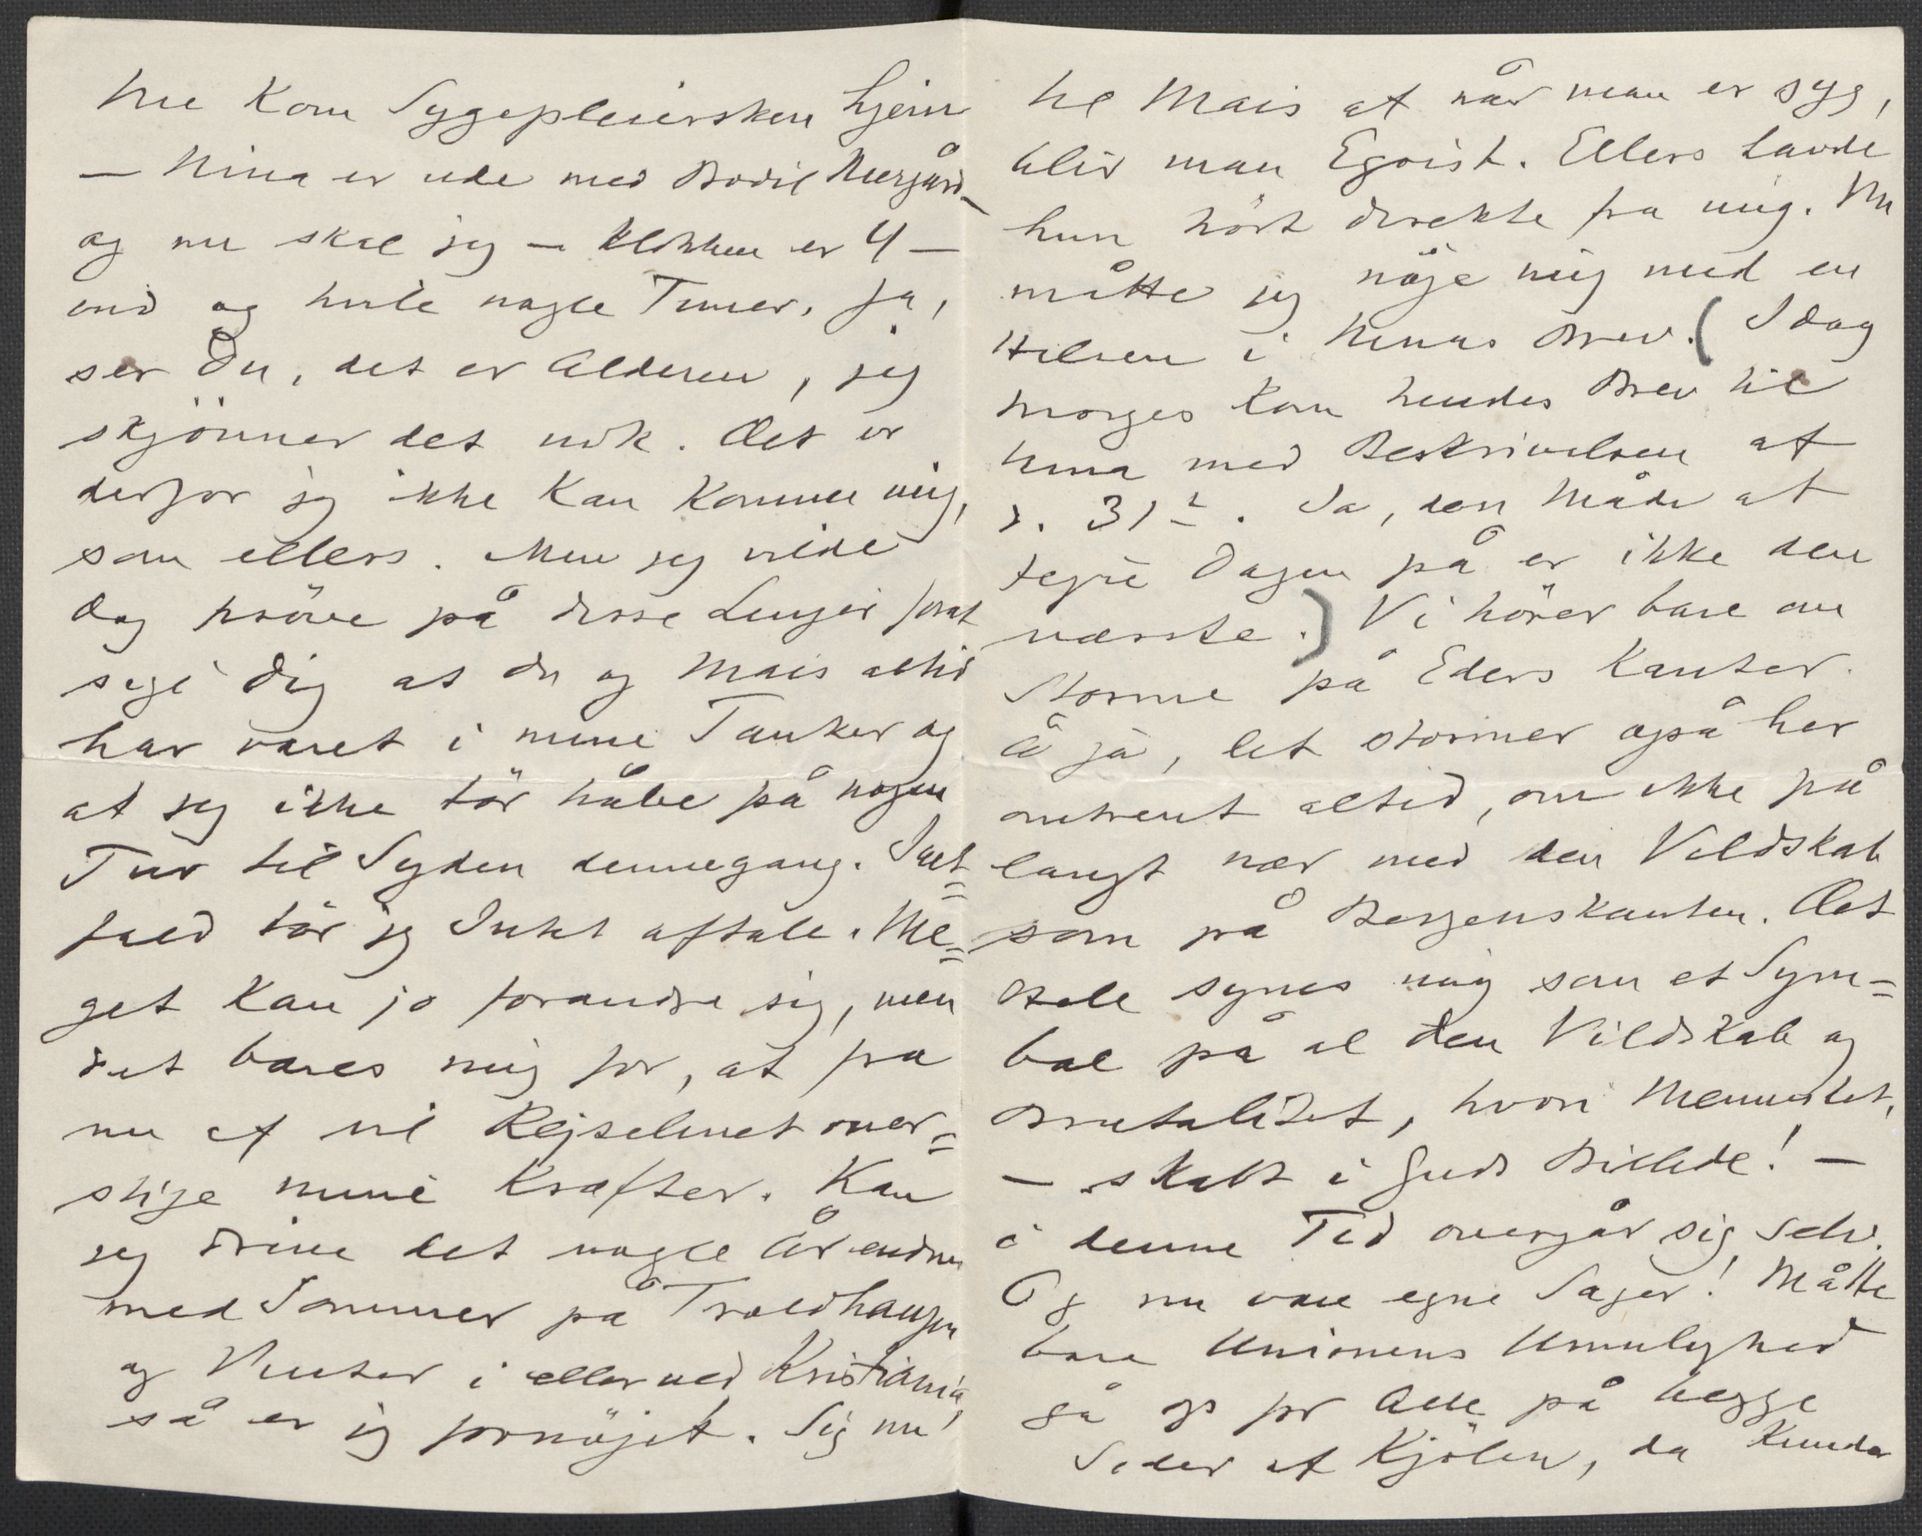 Nu kom Sygepleiersken hjem
— Nina er ude med Bodil Neergård —
og nu skal jeg — Klokken er 4 —
ind og hvile nogle Timer. Ja,
ser Du, det er Alderen, jeg
skjönner det nok. Det er
derfor jeg ikke kan komme mig,
som ellers. Men jeg vilde
dog pröve på disse Linjer forat
sige Dig at Du og Mais altid
har været i mine Tanker og
at jeg ikke tör håbe på nogen
Tur til Syden dennegang. Ialt=
fald tör jeg Intet aftale. Me=
get kan jo forandre sig, men
det bæres mig for, at fra
nu af vil Rejselivet over=
stige mine Kræfter. Kan
jeg drive det nogle År endnu
med Sommer på Troldhaugen
og Vinter i eller ved Kristiania,
så er jeg fornöjet. Sig nu
til Mais at når man er syg,
blir man Egoist. Ellers havde
hun hört direkte fra mig. Nu
måtte jeg nöje mig med en
Hilsen i Ninas Brev. (Idag
morges kom hendes Brev til
Nina med Beskrivelsen af
d. 31te. Ja, den Måde at
fejre Dagen på er ikke den
værste.) Vi hörer bare om
Storme på Eders Kanter.
Å ja, det stormer også her
omtrent altid, om ikke på
langt nær med den Vildskab
som på Bergenskanten. Det
Hele synes mig som et Sym=
bol på al den Vildskab og
Brutalitet, hvori Mennesket,
— skabt i Guds Billede! —
i denne Tid overgår sig selv.
Og nu vore egne Sager! Måtte
bare Unionens Umulighed
gå op for Alle på begge
Sider af Kjölen, da kunde